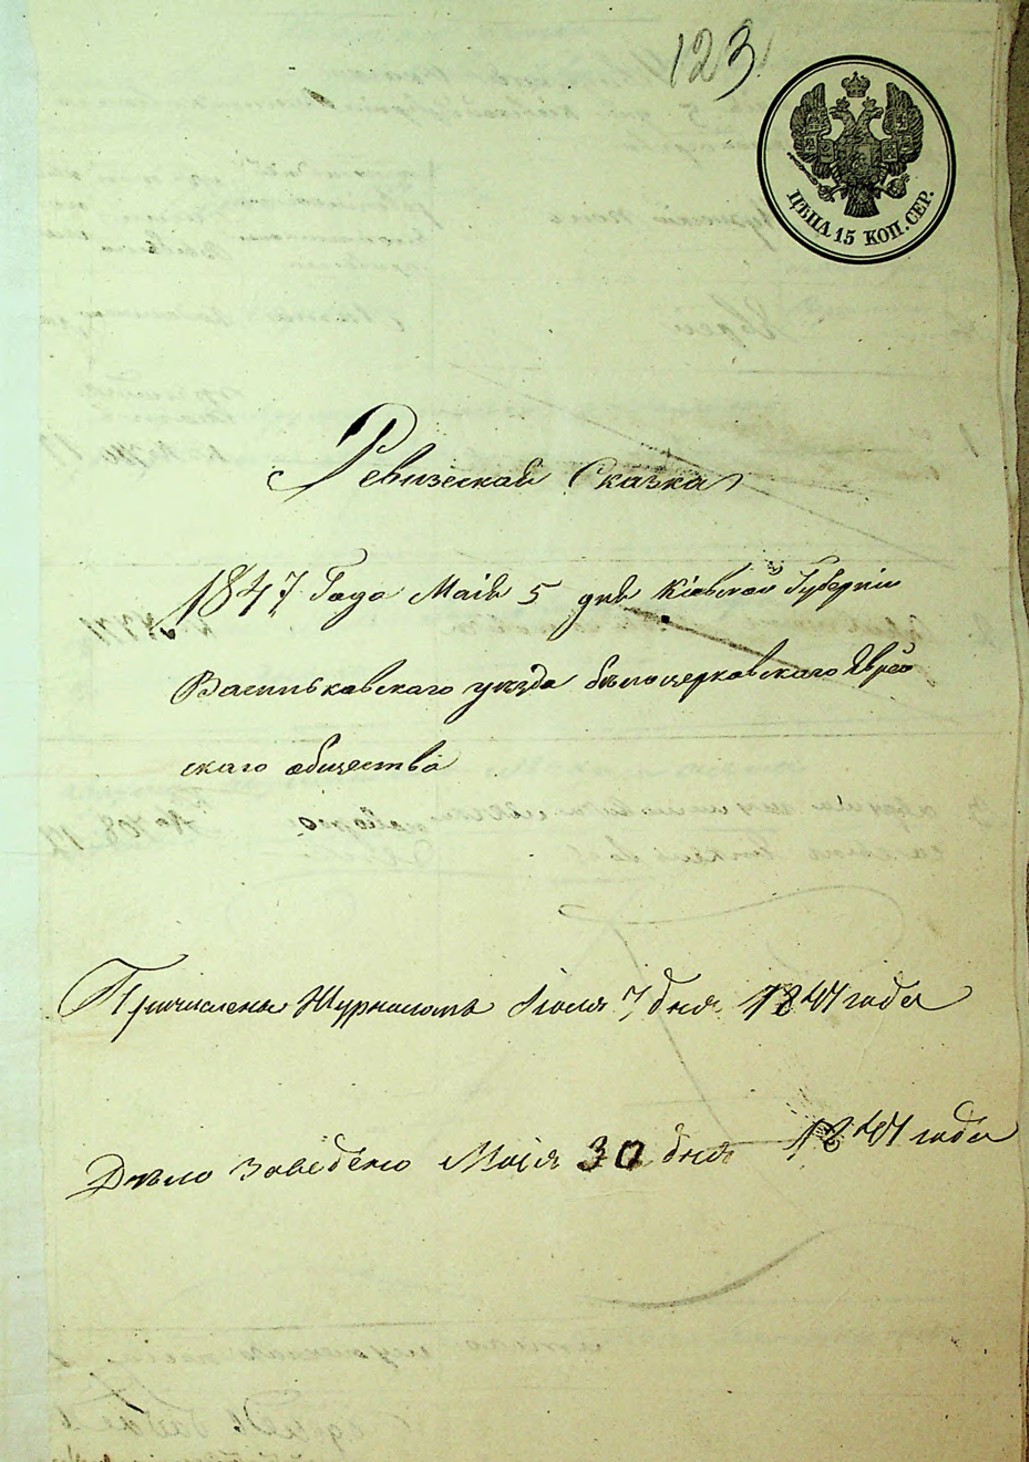 123
ЦѢНА 15 КОП. СЕР.
Ревизская Сказка
1847 Года Маія 5 дня Кіевской Губерніи
Васильковскаго уѣзда бѣлоцерковскаго Еврей
скаго общества
Причислены Журналомъ Іюля 7 дня 1847 года
Дѣло заведено Маія 30 дня 1847 года